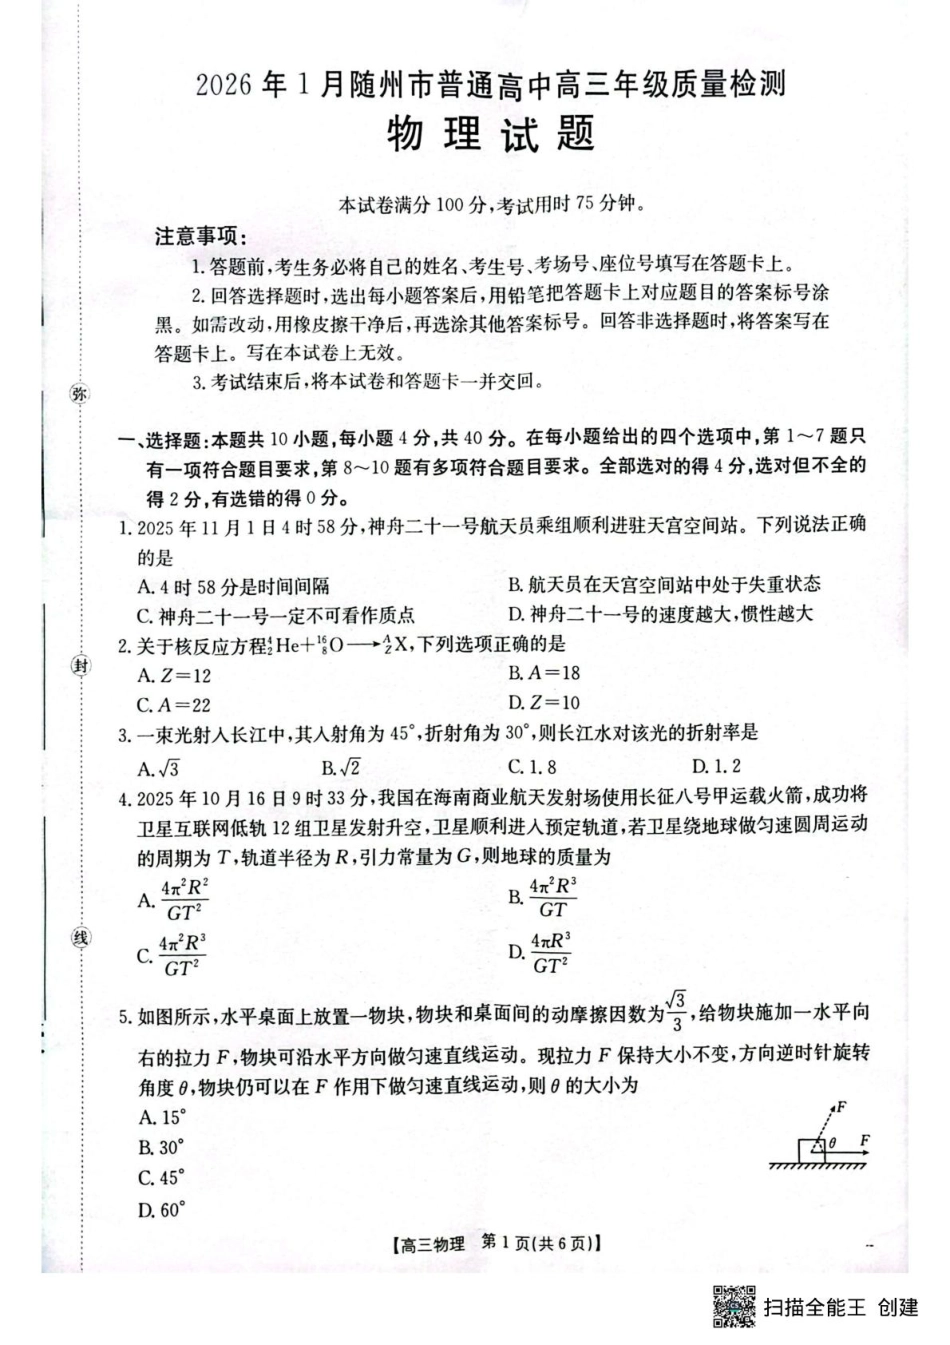 2026 年 1 月随州市普通高中高三年级质量检测
物理试题
本试卷满分 100 分,考试用时 75 分钟。
注意事项:
1. 答题前,考生务必将自己的姓名、考生号、考场号、座位号填写在答题卡上。
2. 回答选择题时,选出每小题答案后,用铅笔把答题卡上对应题目的答案标号涂
黑。如需改动,用橡皮擦干净后,再选涂其他答案标号。回答非选择题时,将答案写在
答题卡上。写在本试卷上无效。
3. 考试结束后,将本试卷和答题卡一并交回。
弥
一、选择题:本题共 10 小题,每小题 4 分,共 40 分。在每小题给出的四个选项中,第 1～7 题只
有一项符合题目要求,第 8～10 题有多项符合题目要求。全部选对的得 4 分,选对但不全的
得 2 分,有选错的得 0 分。
1. 2025 年 11 月 1 日 4 时 58 分,神舟二十一号航天员乘组顺利进驻天宫空间站。下列说法正确
的是
A. 4 时 58 分是时间间隔 B. 航天员在天宫空间站中处于失重状态
C. 神舟二十一号一定不可看作质点 D. 神舟二十一号的速度越大,惯性越大
2. 关于核反应方程 ⁴₂He+¹⁶₈O⟶ᴬ_ZX,下列选项正确的是
封
A. Z=12 B. A=18
C. A=22 D. Z=10
3. 一束光射入长江中,其入射角为 45°,折射角为 30°,则长江水对该光的折射率是
A. √3 B. √2 C. 1.8 D. 1.2
4. 2025 年 10 月 16 日 9 时 33 分,我国在海南商业航天发射场使用长征八号甲运载火箭,成功将
卫星互联网低轨 12 组卫星发射升空,卫星顺利进入预定轨道,若卫星绕地球做匀速圆周运动
的周期为 T,轨道半径为 R,引力常量为 G,则地球的质量为
A. 4π²R²/GT² B. 4π²R³/GT
线
C. 4π²R³/GT² D. 4πR³/GT²
5. 如图所示,水平桌面上放置一物块,物块和桌面间的动摩擦因数为 √3/3,给物块施加一水平向
右的拉力 F,物块可沿水平方向做匀速直线运动。现拉力 F 保持大小不变,方向逆时针旋转
角度 θ,物块仍可以在 F 作用下做匀速直线运动,则 θ 的大小为
A. 15°
B. 30°
C. 45°
D. 60°
F
θ F
【高三物理 第 1 页(共 6 页)】
扫描全能王 创建